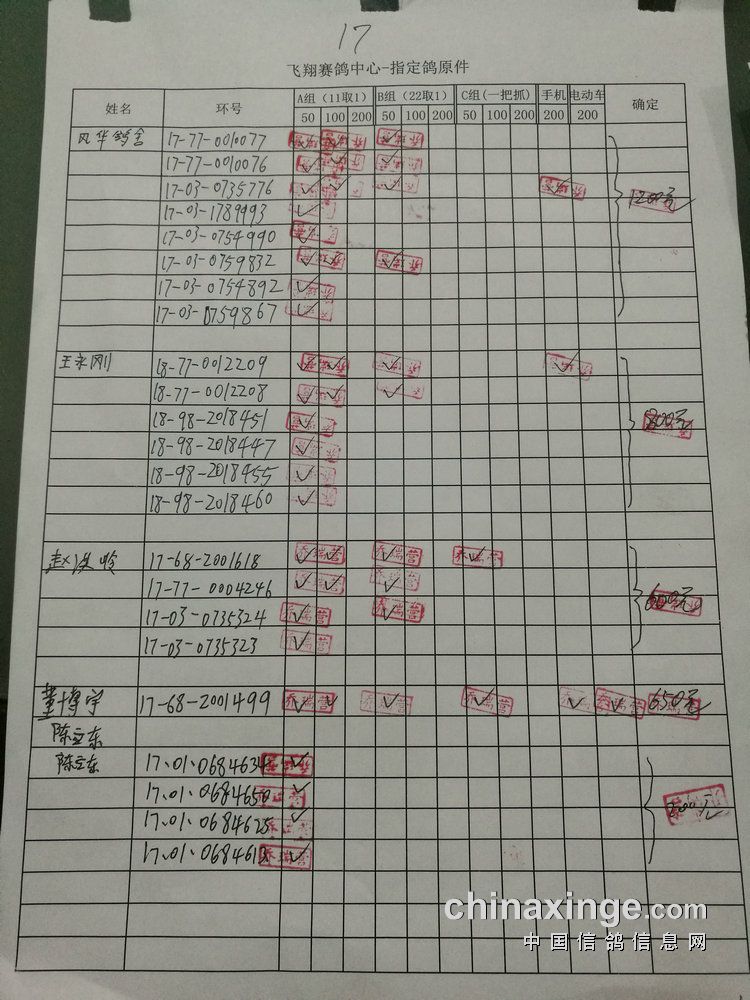 17
飞翔赛鸽中心-指定鸽原件
姓名 环号 A组（11取1） B组（22取1） C组(一把抓) 手机 电动车 确定
50 100 200 50 100 200 50 100 200 200 200
风华鸽舍 17-77-0010077
17-77-0010076
17-03-0735776
17-03-1789993 1200元
17-03-0754990
17-03-0759832
17-03-0754892
17-03-0759867
王永刚 18-77-0012209
18-77-0012208
18-98-2018451 800元
18-98-2018447
18-98-2018455
18-98-2018460
17-68-2001618 乔瑞营 乔瑞营 乔瑞营
17-77-0004246 乔瑞营 600元
17-03-0735324 乔瑞营 乔瑞营
17-03-0735323 乔瑞营
董博宇 17-68-2001499 乔瑞营 乔瑞营 乔瑞营 乔瑞营 650元
陈立东
陈立东 17.01.0684634
17.01.0684650
17.01.0684625 200元
17.01.068461
chinaxinge.com
中国信鸽信息网